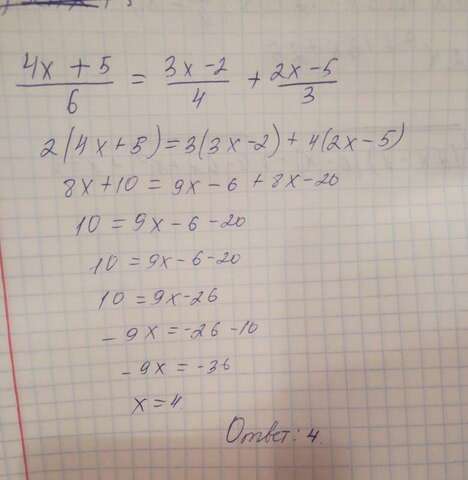 (4x + 5)/6 = (3x - 2)/4 + (2x - 5)/3
2(4x+5)=3(3x-2)+4(2x-5)
8x+10 = 9x-6+8x-20
10 = 9x-6-20
10 = 9x-6-20
10 = 9x-26
-9x = -26-10
-9x = -36
x = 4
Ответ: 4.